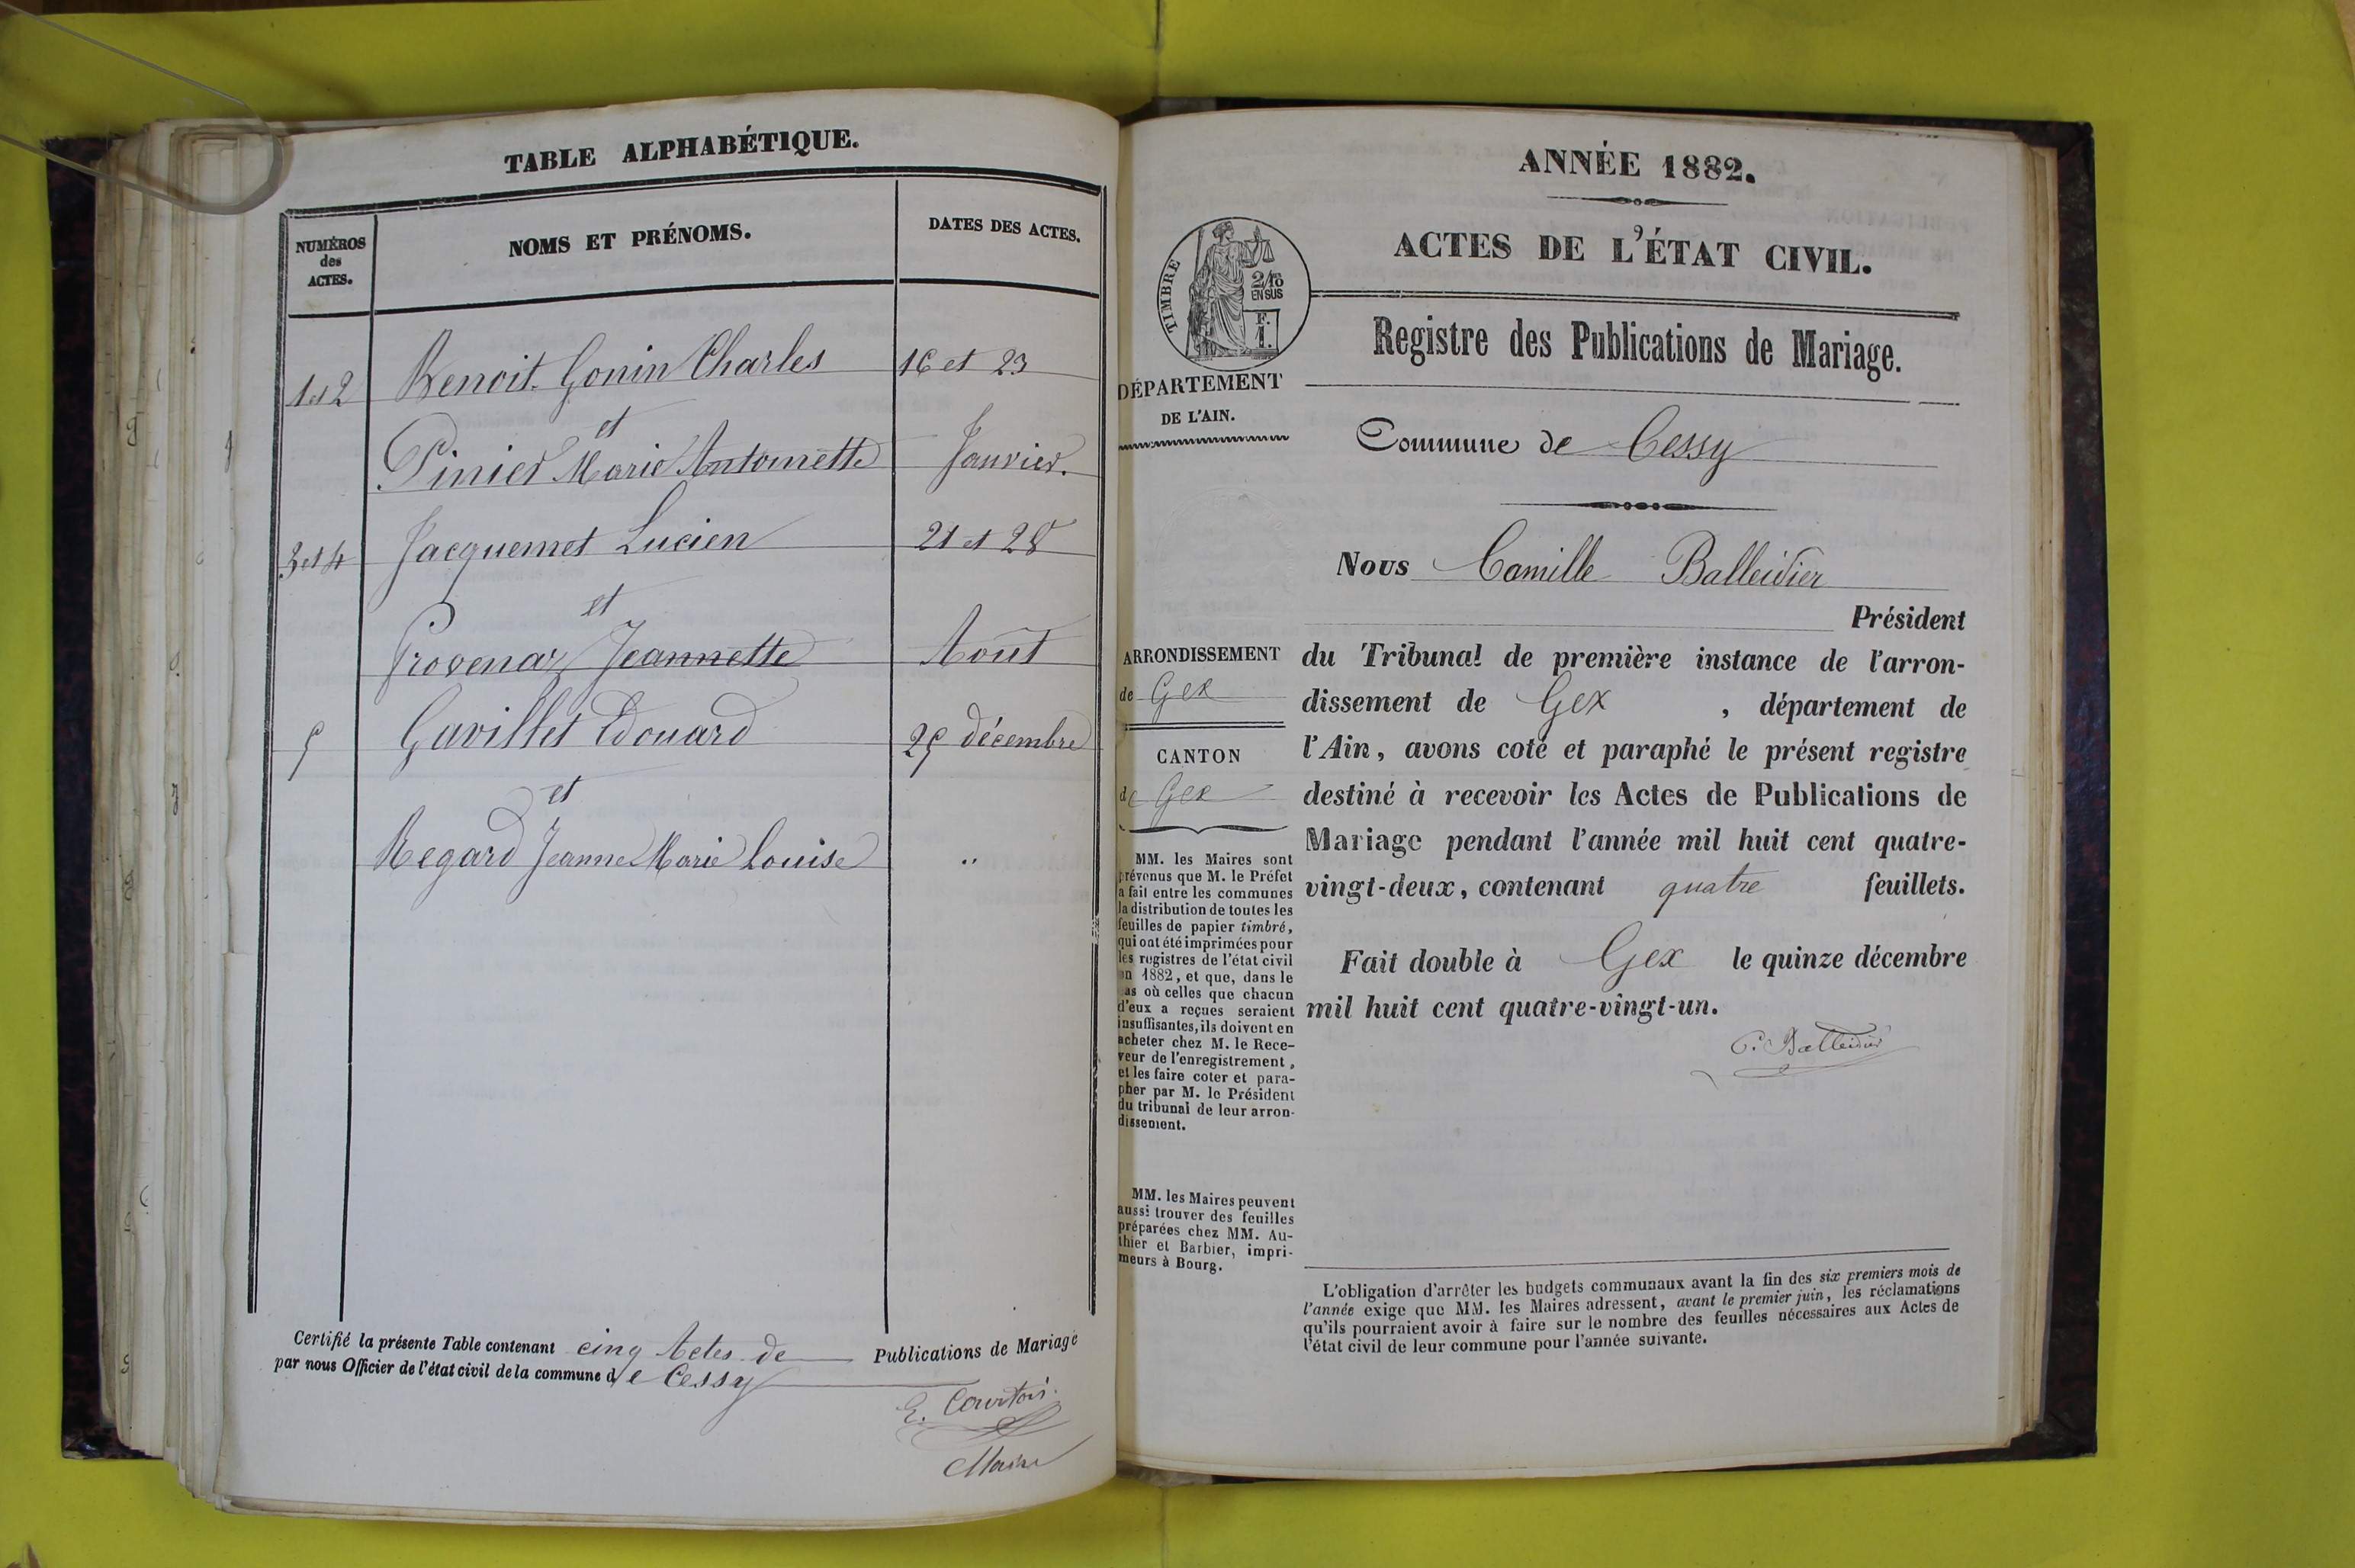 TABLE ALPHABÉTIQUE.
NUMÉROS
des
ACTES.
NOMS ET PRÉNOMS.
DATES DES ACTES.
1 et 2 Benoit-Gonin Charles 16 et 23
et
Pinier Marie Antoinette Janvier.
3 et 4 Jacquemet Lucien 21 et 28
et
Provenaz Jeannette Août
5 Gavillet Edouard 25 décembre
et
Regard Jeanne Marie Louise "
Certifié la présente Table contenant cinq Actes de Publications de Mariage
par nous Officier de l'état civil de la commune de Cessy
E. Courtois
Maire
ANNÉE 1882.
ACTES DE L'ÉTAT CIVIL.
TIMBRE
2/10
EN SUS
F.
1.
Registre des Publications de Mariage.
DÉPARTEMENT
DE L'AIN.
Commune de Cessy
Nous Camille Balleidier
Président
ARRONDISSEMENT
de Gex
CANTON
de Gex
du Tribunal de première instance de l'arron-
dissement de Gex , département de
l'Ain, avons coté et paraphé le présent registre
destiné à recevoir les Actes de Publications de
Mariage pendant l'année mil huit cent quatre-
vingt-deux, contenant quatre feuillets.
Fait double à Gex le quinze décembre
mil huit cent quatre-vingt-un.
C. Balleidier
MM. les Maires sont
prévenus que M. le Préfet
a fait entre les communes
la distribution de toutes les
feuilles de papier timbré,
qui ont été imprimées pour
les registres de l'état civil
en 1882, et que, dans le
cas où celles que chacun
d'eux a reçues seraient
insuffisantes, ils doivent en
acheter chez M. le Rece-
veur de l'enregistrement,
et les faire coter et para-
pher par M. le Président
du tribunal de leur arron-
dissement.
MM. les Maires peuvent
aussi trouver des feuilles
préparées chez MM. Au-
thier et Barbier, impri-
meurs à Bourg.
L'obligation d'arrêter les budgets communaux avant la fin des six premiers mois de
l'année exige que MM. les Maires adressent, avant le premier juin, les réclamations
qu'ils pourraient avoir à faire sur le nombre des feuilles nécessaires aux Actes de
l'état civil de leur commune pour l'année suivante.